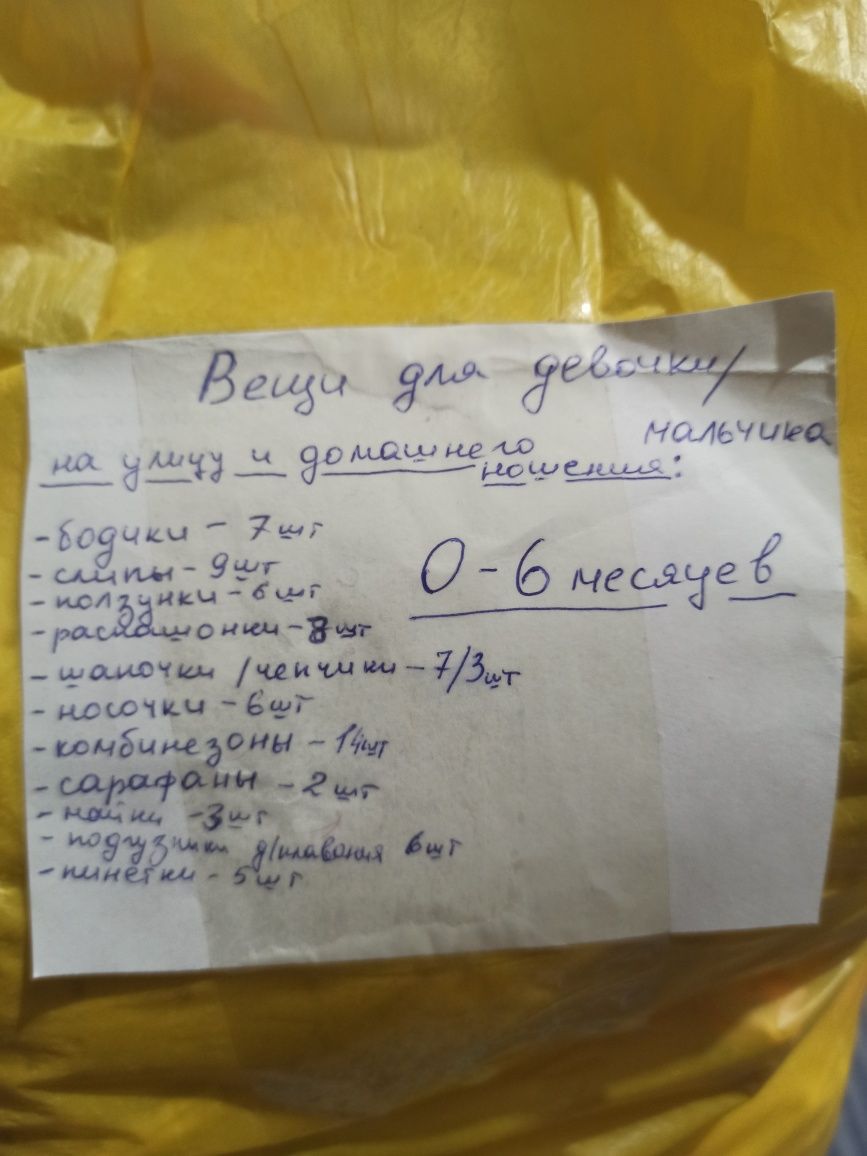 Вещи для девочки/
мальчика
на улицу и домашнего
ношения:
0-6 месяцев
- бодики - 7шт
- слипы - 9шт
- ползунки - 6шт
- распашонки - 8шт
- шапочки /чепчики - 7/3шт
- носочки - 6шт
- комбинезоны - 14шт
- сарафаны - 2шт
- майки - 3шт
- подгузники д/плавания 6шт
- пинетки - 5шт